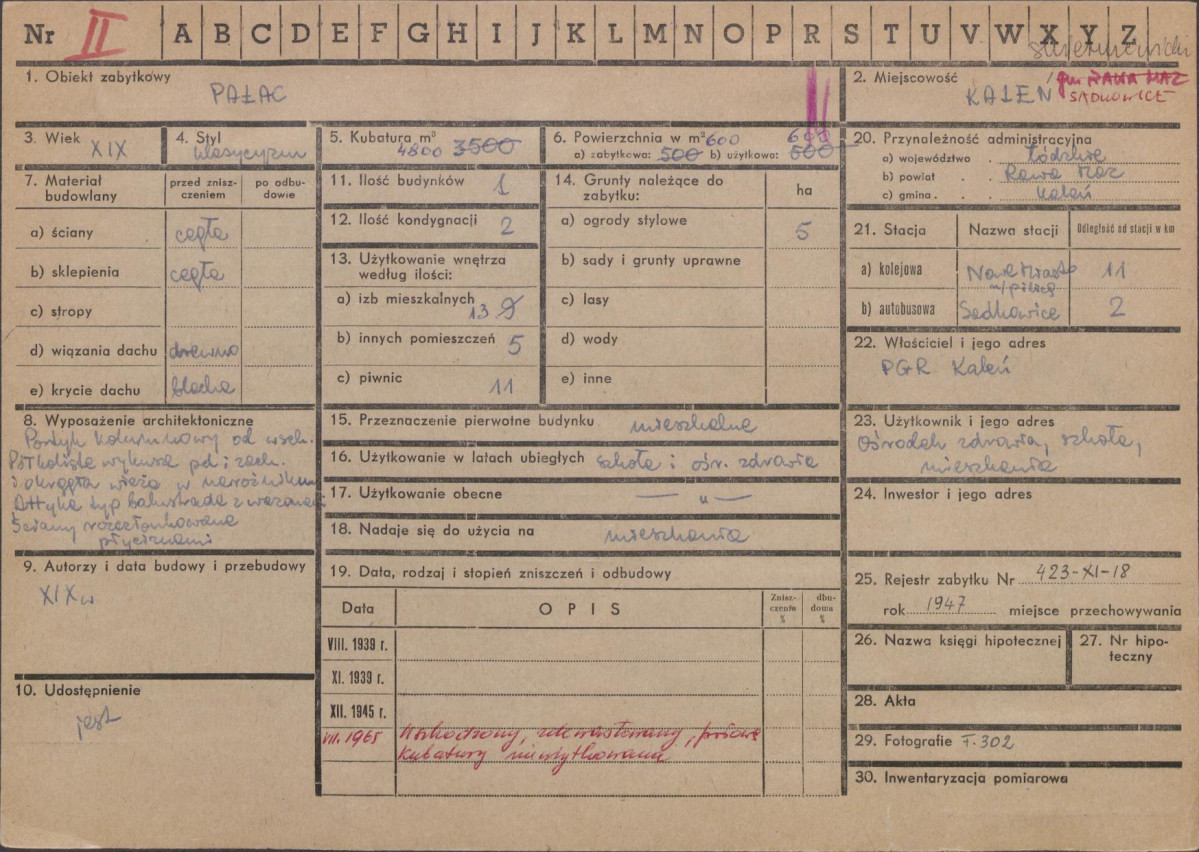 Nr II A B C D E F G H I J K L M N O P R S T U V W X Y Z
1. Obiekt zabytkowy
PAŁAC
2. Miejscowość
KALEŃ
gm RAWA MAZ
SADKOWICE
3. Wiek XIX
4. Styl
klasycyzm
5. Kubatura m³
4800 3500
6. Powierzchnia w m² 600 600
a) zabytkowa: 500 b) użytkowa: 500
20. Przynależność administracyjna
a) województwo . Łódzkie
b) powiat . . Rawa Maz
c) gmina . . . Kaleń
7. Materiał budowlany
przed znisz-
czeniem
po odbu-
dowie
a) ściany cegła
b) sklepienia cegła
c) stropy
d) wiązania dachu drewno
e) krycie dachu blacha
11. Ilość budynków 1
12. Ilość kondygnacji 2
13. Użytkowanie wnętrza
według ilości:
a) izb mieszkalnych 13 9
b) innych pomieszczeń 5
c) piwnic 11
14. Grunty należące do
zabytku:
ha
a) ogrody stylowe 5
b) sady i grunty uprawne
c) lasy
d) wody
e) inne
21. Stacja
Nazwa stacji
Odległość od stacji w km
a) kolejowa Nowe Miasto
n/pilicą 11
b) autobusowa Sadkowice 2
22. Właściciel i jego adres
PGR Kaleń
8. Wyposażenie architektoniczne
Portyk kolumnowy od wsch.
Półkoliste wykusze pd i zach.
i okrągła wieża w narożniku
Attyka typ balustrada z wazonami
Ściany rozczłonkowane
płycinami
15. Przeznaczenie pierwotne budynku mieszkalne
16. Użytkowanie w latach ubiegłych szkoła i ośr. zdrowia
17. Użytkowanie obecne — " —
18. Nadaje się do użycia na mieszkania
23. Użytkownik i jego adres
Ośrodek zdrowia, szkoła,
mieszkania
24. Inwestor i jego adres
9. Autorzy i data budowy i przebudowy
XIX w
10. Udostępnienie
jest
19. Data, rodzaj i stopień zniszczeń i odbudowy
Data
OPIS
Znisz-
czenia
%
dbu-
dowa
%
VIII. 1939 r.
XI. 1939 r.
XII. 1945 r.
VII. 1965
kubatury nieużytkowana
25. Rejestr zabytku Nr 423-XI-18
rok 1947 miejsce przechowywania
26. Nazwa księgi hipotecznej
27. Nr hipo-
teczny
28. Akta
29. Fotografie F. 302
30. Inwentaryzacja pomiarowa